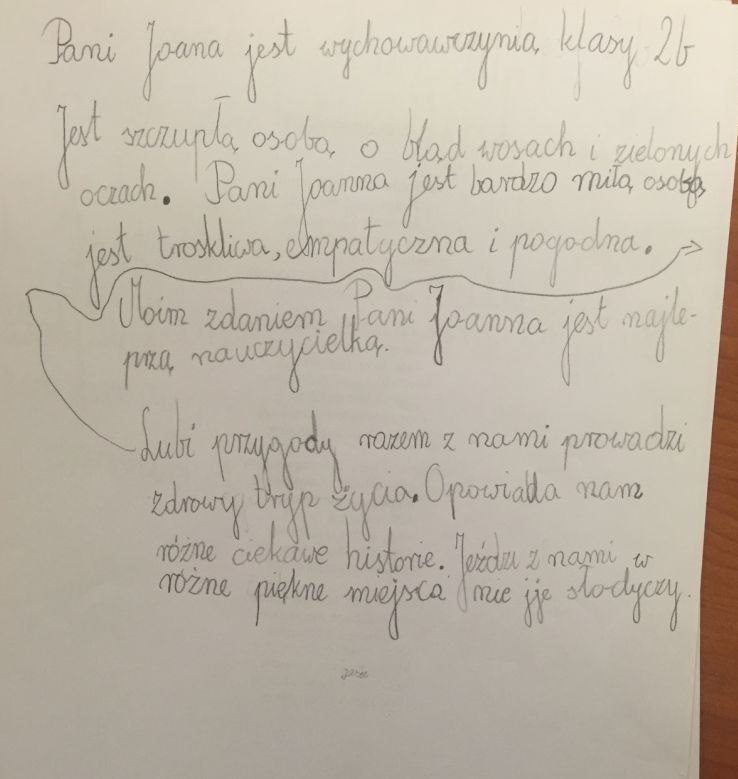 Pani Joana jest wychowawczynią klasy 2b
Jest szczupłą osobą o bląd wosach i zielonych
oczach. Pani Joanna jest bardzo miłą osobą,
jest troskliwa, empatyczna i pogodna.
Moim zdaniem Pani Joanna jest najle-
przą nauczycielką.
Lubi przygody razem z nami prowadzi
zdrowy tryp życia. Opowiada nam
różne ciekawe historie. Jeździ z nami w
różne piękne miejsca nie jje słodyczy.